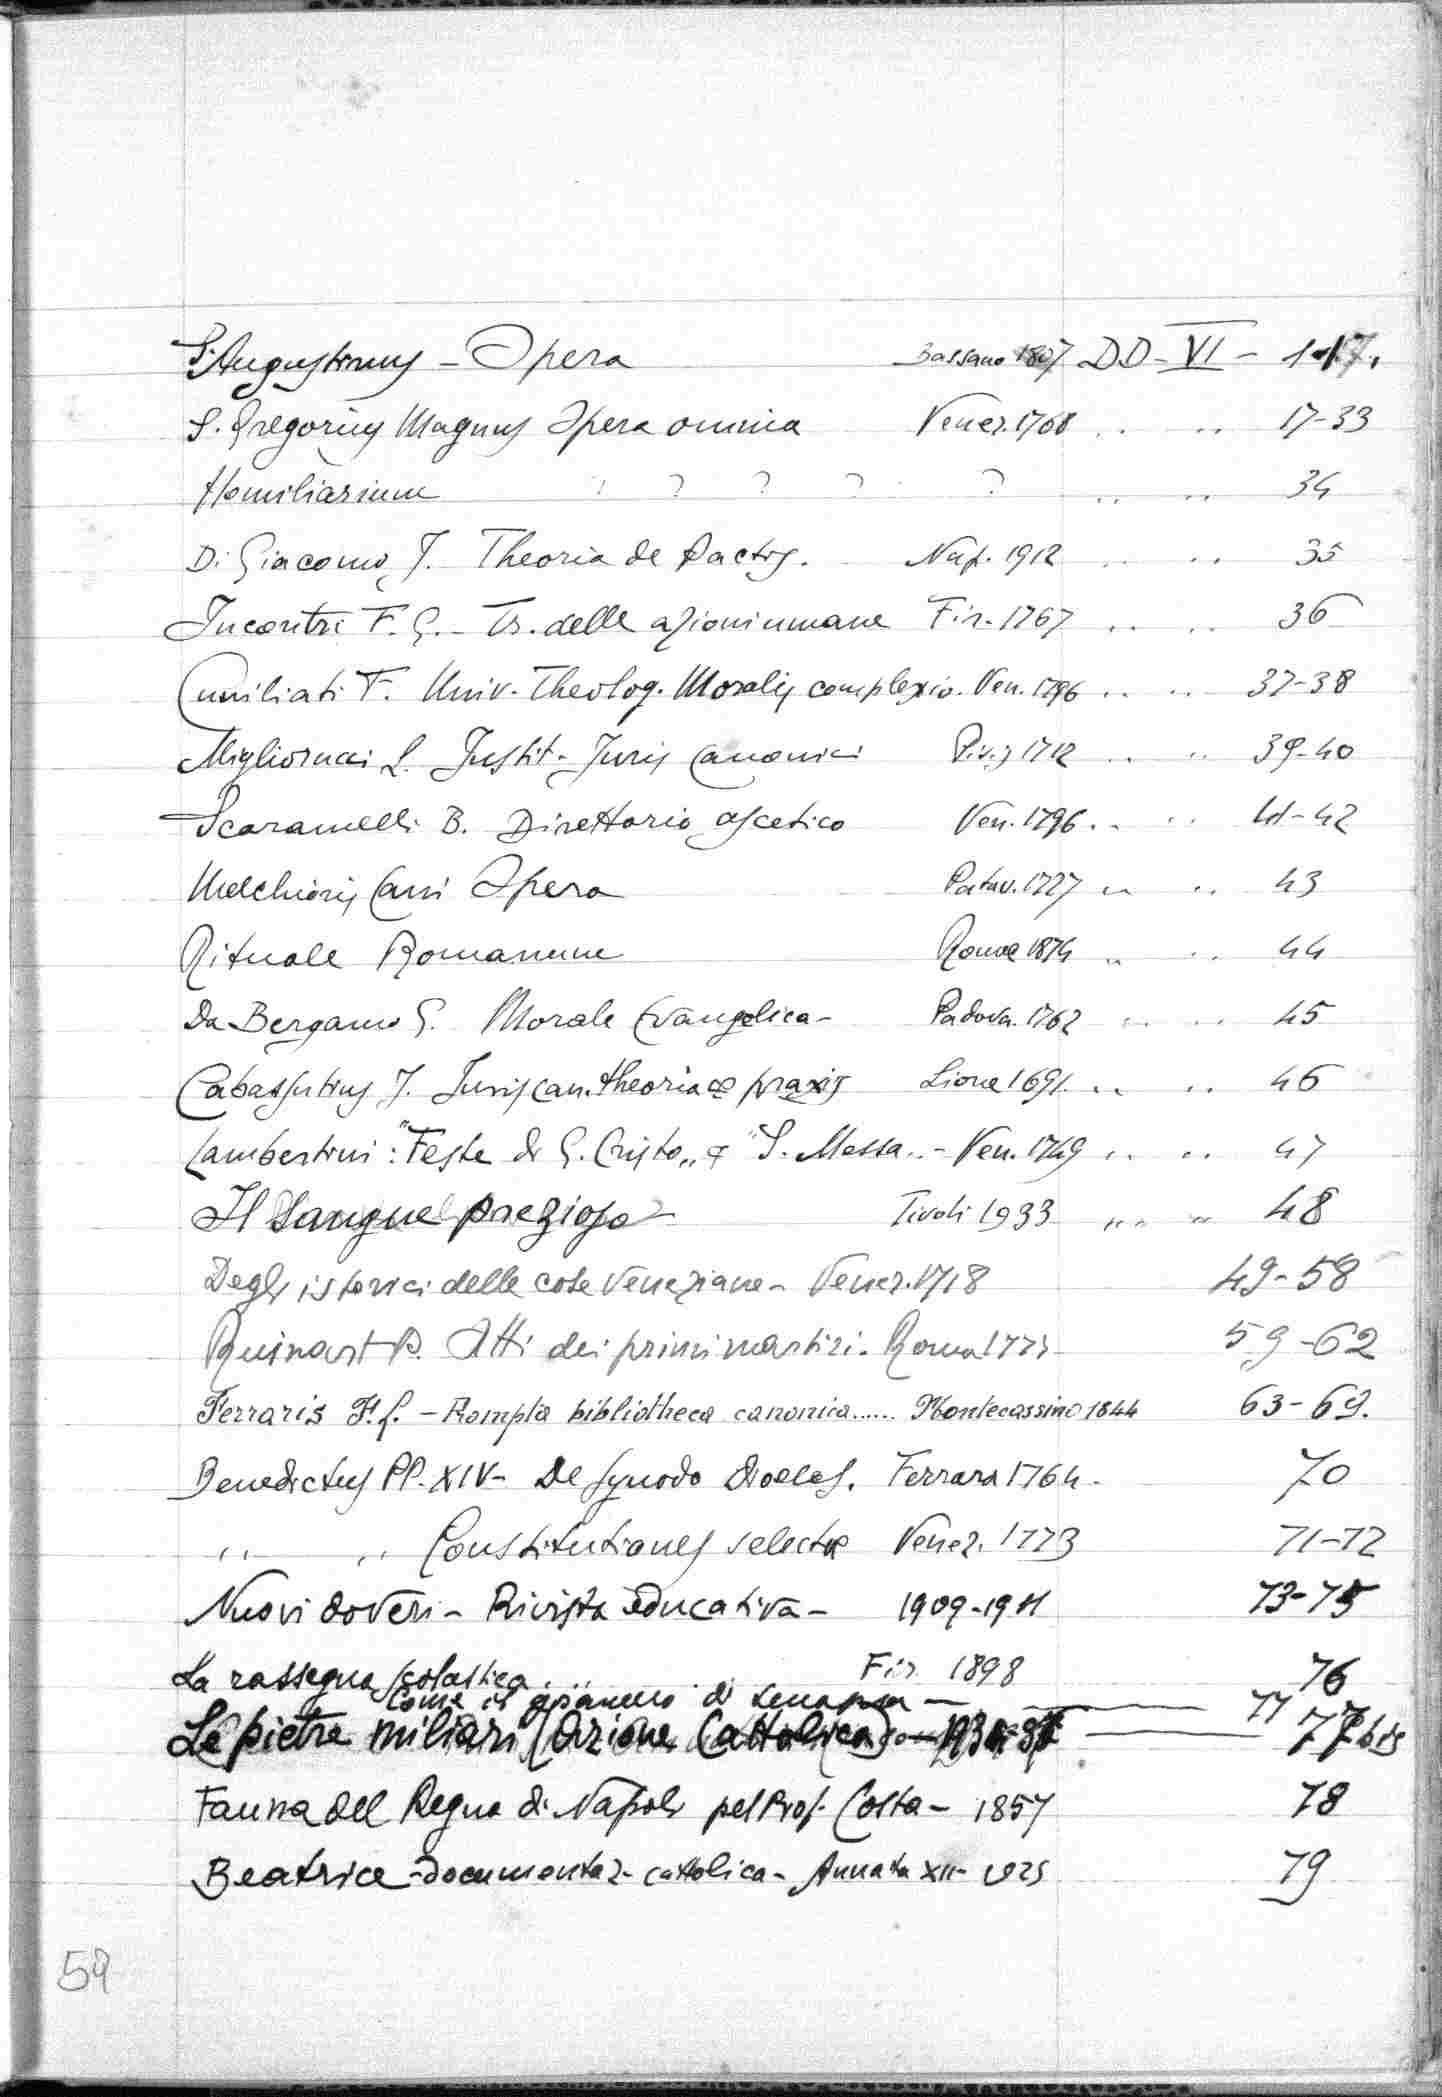 S. Augustinus - Opera Bassano 1807 DD - VI - 1-17.
S. Gregorius Magnus Opera omnia Venez. 1768 .. .. 17-33
Homiliarium ? ? ? ? ? .. .. 34
Di Giacomo J. Theoria de Pactis. Nap. 1912 .. .. 35
Incontri F. G. - Tr. delle azioni umane Fir. 1767 .. .. 36
Cuniliati F. Univ. Theolog. Moralis complexio. Ven. 1796 .. .. 37-38
Migliorucci L. Instit. Juris Canonici 1712 .. .. 39-40
Scaramelli B. Direttorio ascetico Ven. 1796 .. .. 41-42
Melchioris Cani Opera Patav. 1727 .. .. 43
Rituale Romanum Romae 1874 .. .. 44
Da Bergamo G. Morale Evangelica - Padova. 1762 .. .. 45
Cabassutius J. Juris can. theoria et praxis Lione 1691. .. .. 46
Lambertini: "Feste di G. Cristo„ e "S. Messa.. - Ven. 1749 .. .. 47
Il Sangue prezioso - Tivoli 1933 .. .. 48
Degli istorici delle cose Veneziane - Venez. 1718 49-58
Ruinart P. Atti dei primi martiri. Roma 177 59-62
Ferraris F. L. - Prompta bibliotheca canonica...... Montecassino 1844 63-69.
Benedictus PP. XIV - De Synodo dioeces. Ferrara 1764 - 70
,, ,, Constitutiones selectae Venez. 1773 71-72
Nuovi doveri - Rivista educativa - 1909-1911 73-75
La rassegna scolastica. Fir. 1898 76
Come il granello di senapa - 77
Le pietre miliari (Azione Cattolica) - 77 bis
Fauna del Regno di Napoli pel Prof. Costa - 1857 78
Beatrice - Documentaz. cattolica - Annata XII - 1925 79
59